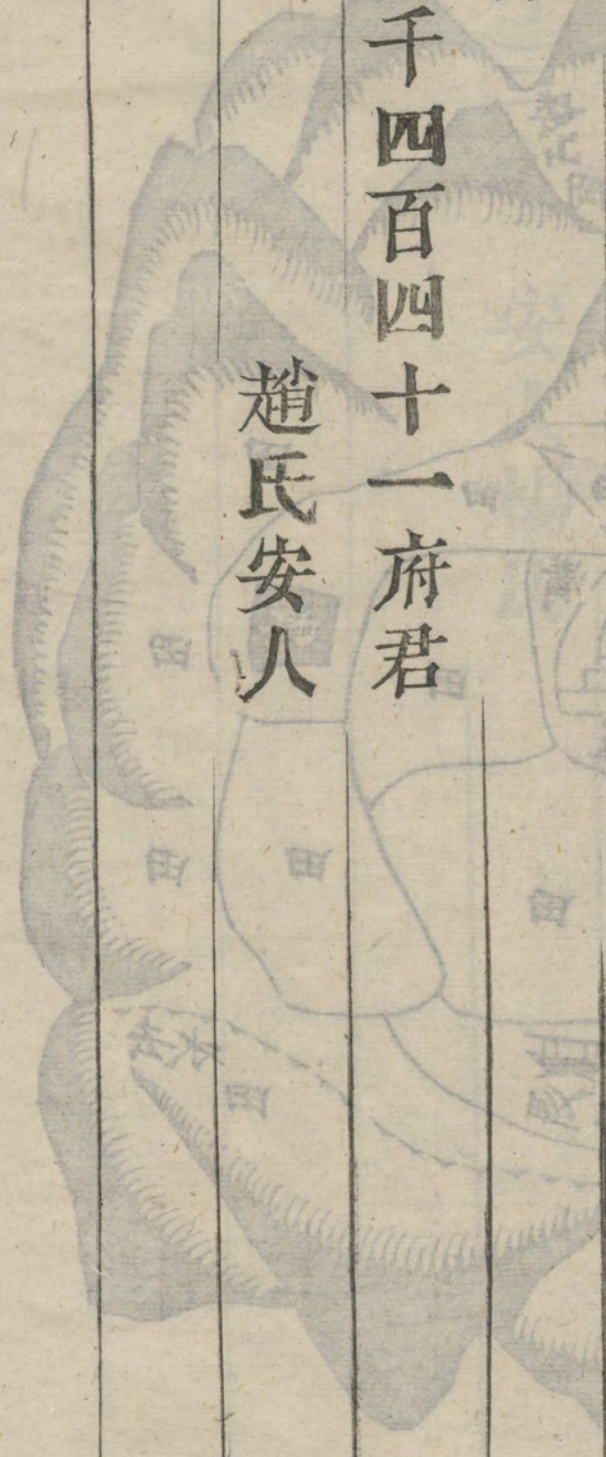 千四百四十一府君
趙氏安人